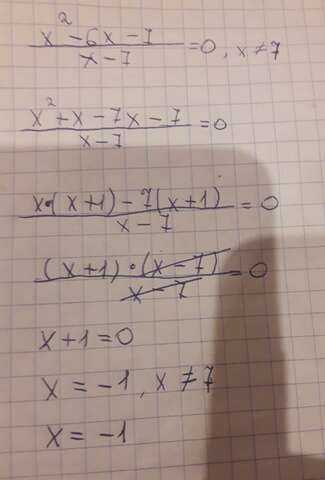 x²-6x-7 / x-7 =0, x≠7
x²+x-7x-7 / x-7 =0
x·(x+1)-7(x+1) / x-7 =0
(x+1)·(x-7) / x-7 =0
x+1=0
x=-1, x≠7
x=-1